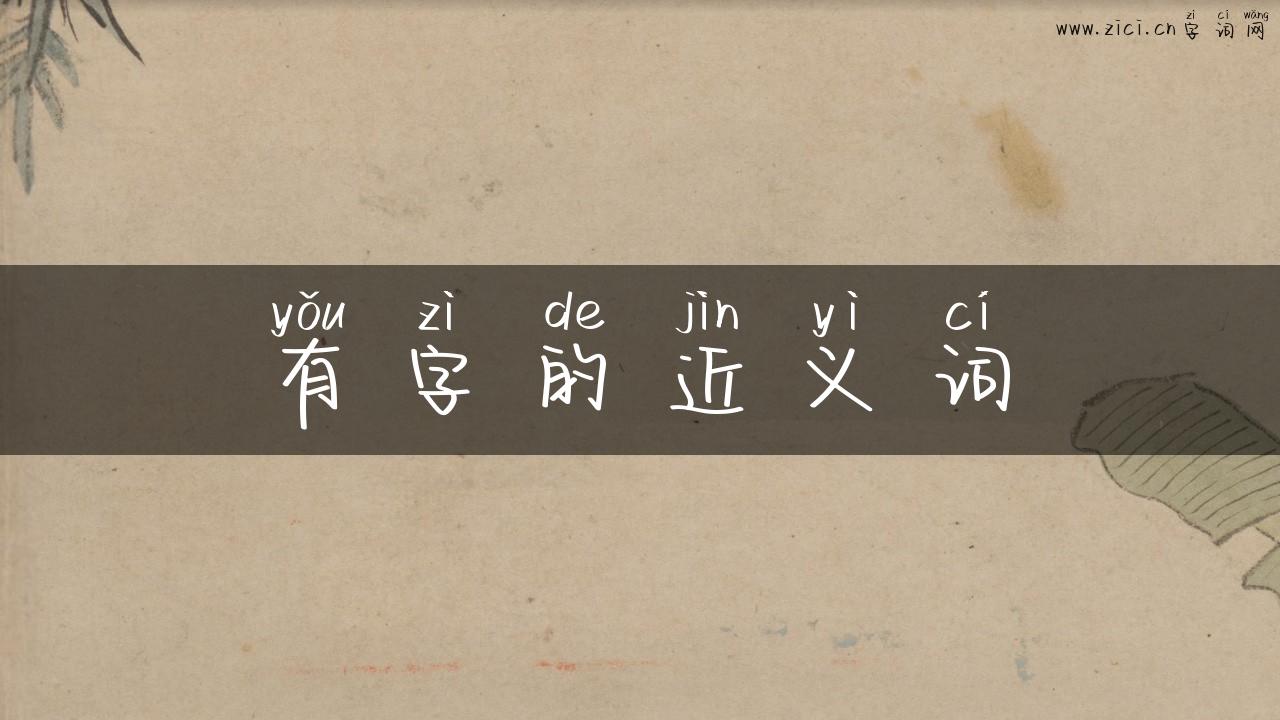 zì cí wǎng
www.zici.cn 字词网
yǒu zì de jìn yì cí
有字的近义词